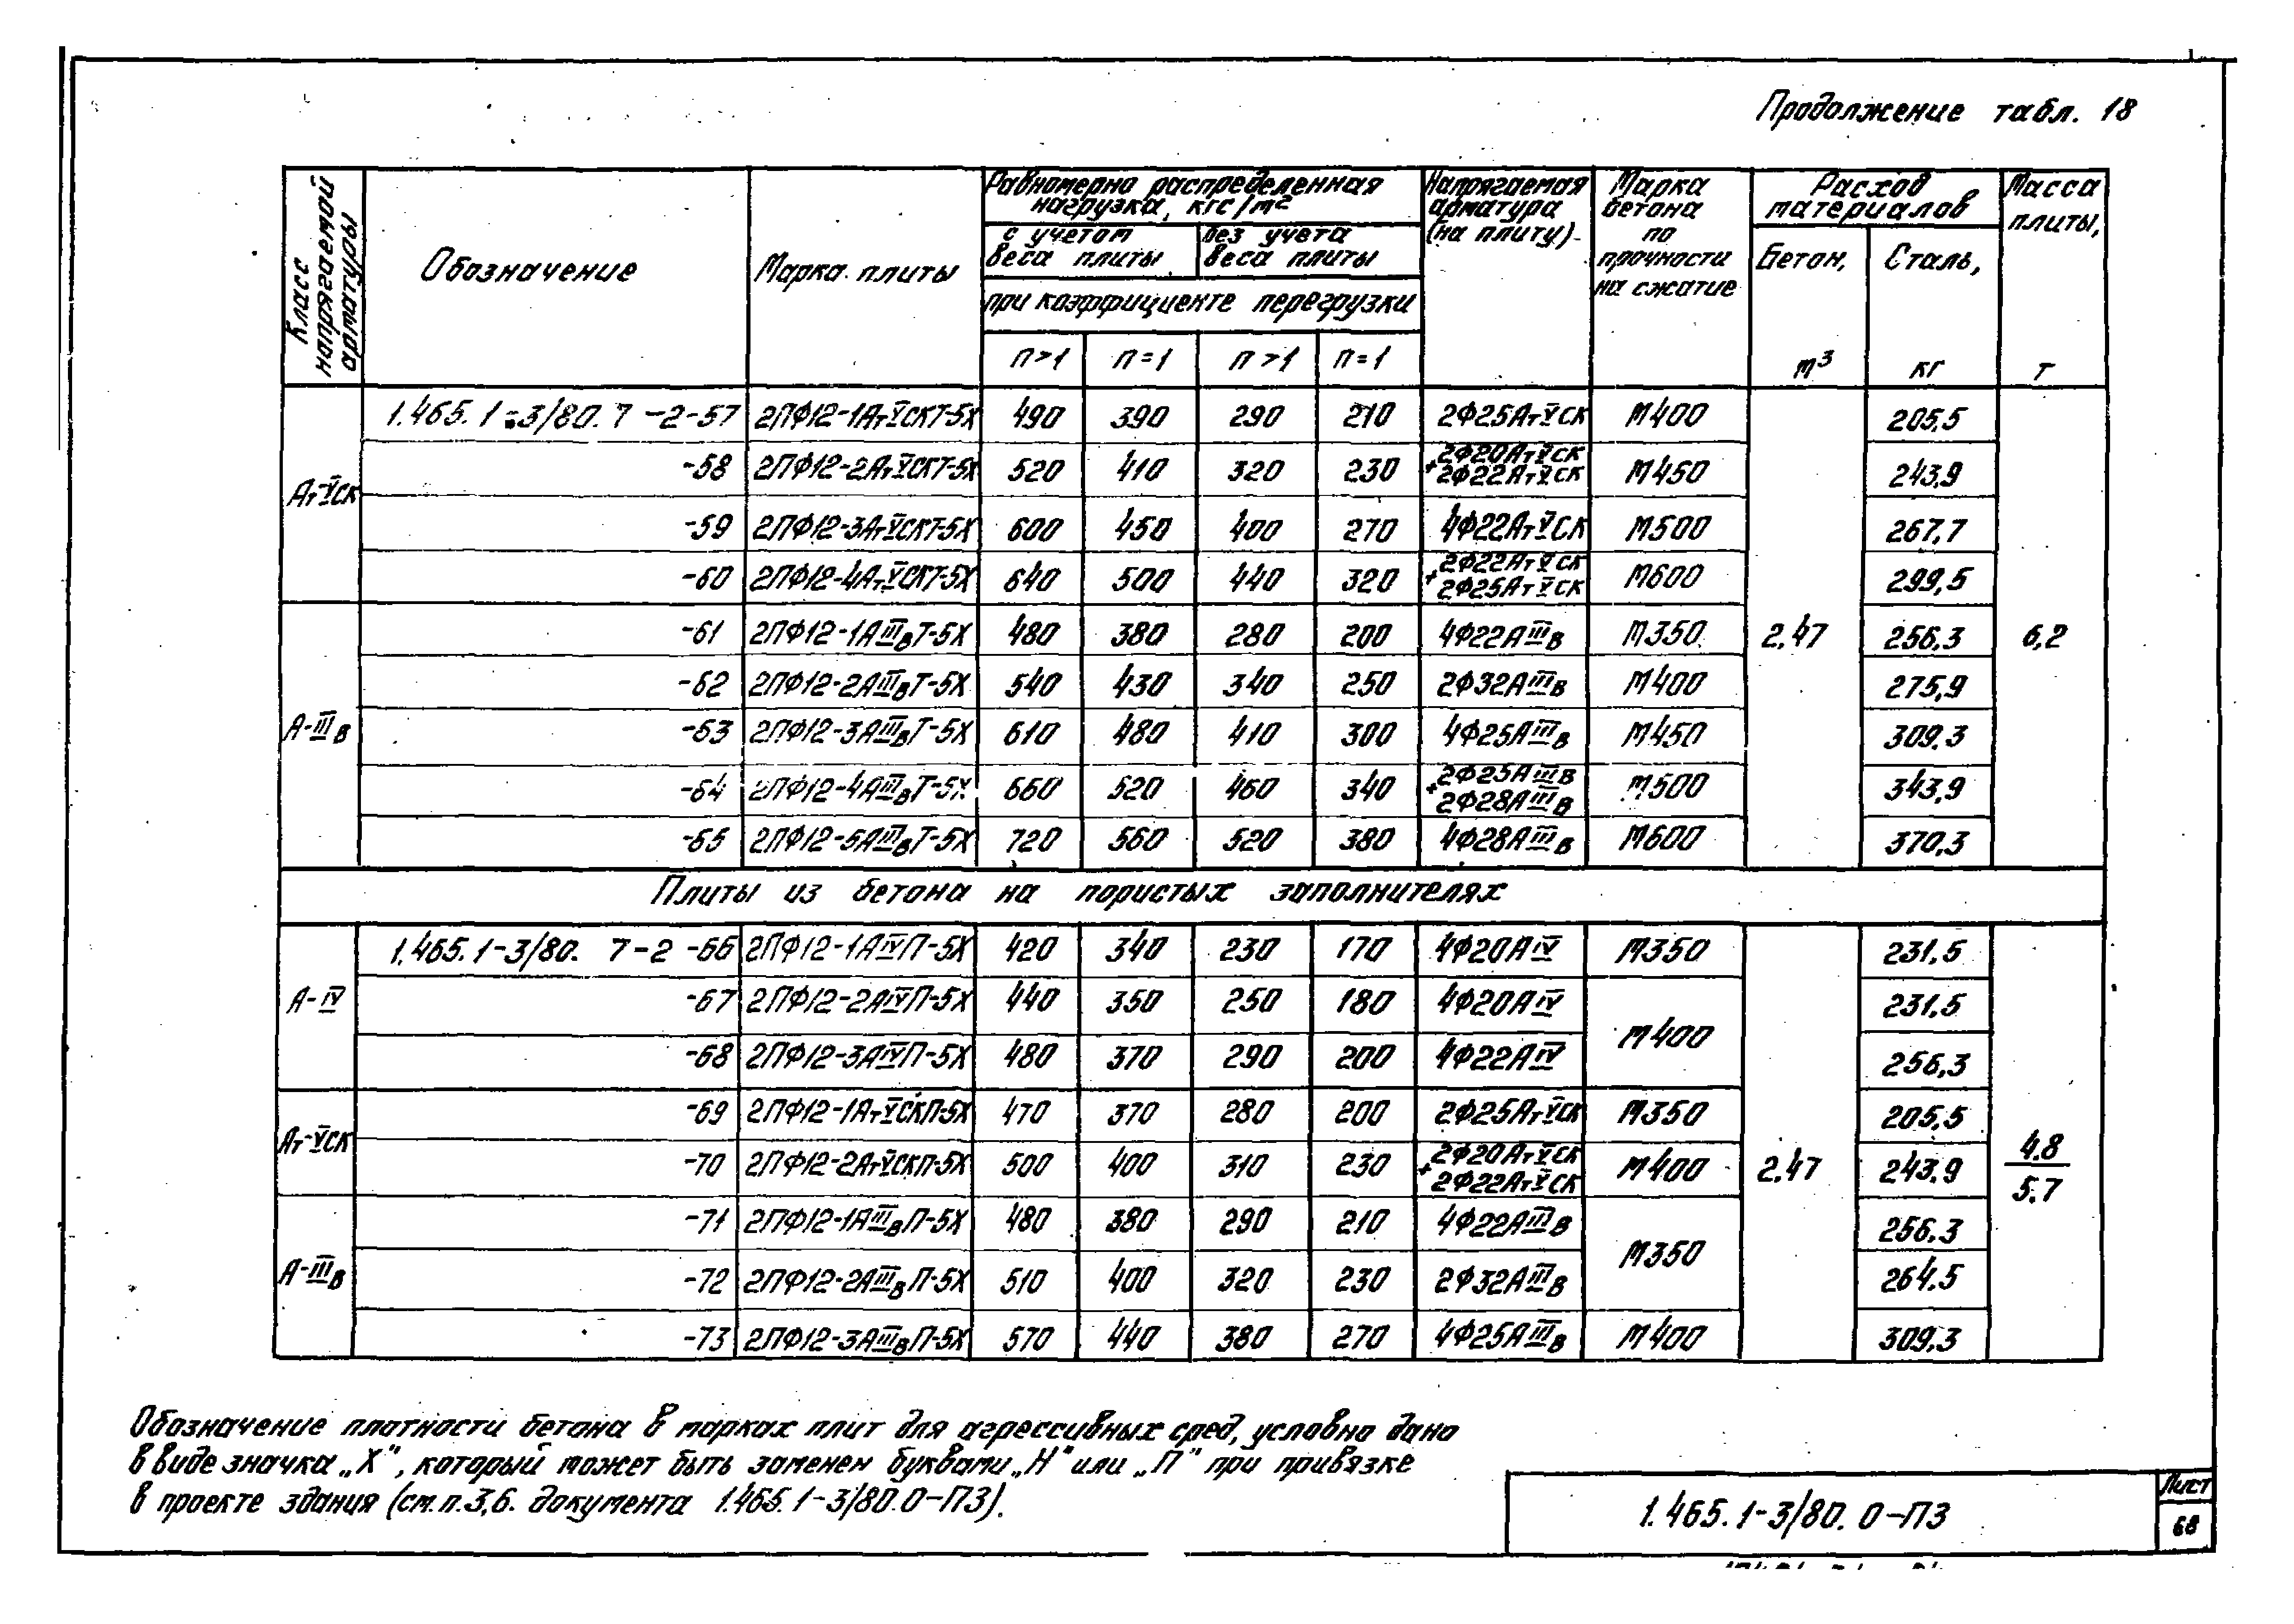 Продолжение табл. 18
Класс напрягаемой арматуры
Обозначение
Марка плиты
Равномерно распределенная
нагрузка, кгс/м²
с учетом
веса плиты
без учета
веса плиты
при коэффициенте перегрузки
п>1 п=1 п>1 п=1
Напрягаемая
арматура
(на плиту)
Марка
бетона
по
прочности
на сжатие
Расход
материалов
Бетон,
м³
Сталь,
кг
Масса
плиты,
т
Ат-VСК
1.465.1-3/80.7-2-57 2ПФ12-1АтVСКТ-5Х 490 390 290 210 2Ф25АтVСК М400 205,5
-58 2ПФ12-2АтVСКТ-5Х 520 410 320 230 2Ф20АтVСК + 2Ф22АтVСК М450 243,9
-59 2ПФ12-3АтVСКТ-5Х 600 450 400 270 4Ф22АтVСК М500 267,7
-60 2ПФ12-4АтVСКТ-5Х 640 500 440 320 2Ф22АтVСК + 2Ф25АтVСК М600 299,5
А-IIIв
-61 2ПФ12-1АIIIвТ-5Х 480 380 280 200 4Ф22АIIIв М350 2,47 256,3 6,2
-62 2ПФ12-2АIIIвТ-5Х 540 430 340 250 2Ф32АIIIв М400 275,9
-63 2ПФ12-3АIIIвТ-5Х 610 480 410 300 4Ф25АIIIв М450 309,3
-64 2ПФ12-4АIIIвТ-5Х 660 520 460 340 2Ф25АIIIв + 2Ф28АIIIв М500 343,9
-65 2ПФ12-5АIIIвТ-5Х 720 560 520 380 4Ф28АIIIв М600 370,3
Плиты из бетона на пористых заполнителях
А-IV
1.465.1-3/80. 7-2 -66 2ПФ12-1АIVП-5Х 420 340 230 170 4Ф20АIV М350 231,5
-67 2ПФ12-2АIVП-5Х 440 350 250 180 4Ф20АIV М400 231,5
-68 2ПФ12-3АIVП-5Х 480 370 290 200 4Ф22АIV 256,3
Ат-VСК
-69 2ПФ12-1АтVСКП-5Х 470 370 280 200 2Ф25АтVСК М350 205,5
-70 2ПФ12-2АтVСКП-5Х 500 400 310 230 2Ф20АтVСК + 2Ф22АтVСК М400 2,47 243,9 4,8/5,7
А-IIIв
-71 2ПФ12-1АIIIвП-5Х 480 380 290 210 4Ф22АIIIв М350 256,3
-72 2ПФ12-2АIIIвП-5Х 510 400 320 230 2Ф32АIIIв 264,5
-73 2ПФ12-3АIIIвП-5Х 570 440 380 270 4Ф25АIIIв М400 309,3
Обозначение плотности бетона в марках плит для агрессивных сред, условно дано
в виде значка „Х", который может быть заменен буквами „Н" или „П" при привязке
в проекте здания (см.п.3,6. документа 1.465.1-3/80.0-ПЗ).
1.465.1-3/80. 0-ПЗ
Лист
68